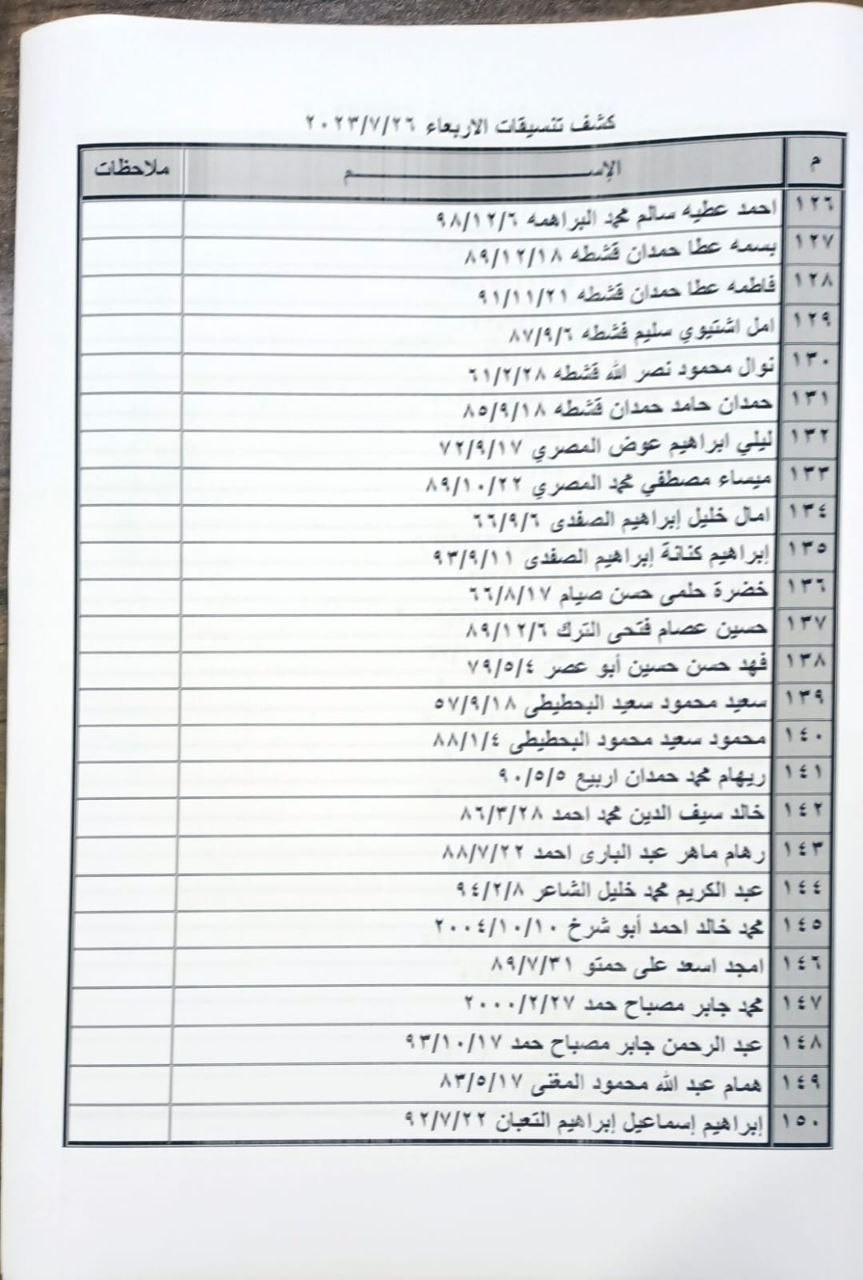 كشف تنسيقات الاربعاء ٢٠٢٣/٧/٢٦
م الإســـــم ملاحظات
١٢٦ احمد عطيه سالم محمد البراهمه ٩٨/١٢/٦
١٢٧ بسمه عطا حمدان قشطه ٨٩/١٢/١٨
١٢٨ فاطمه عطا حمدان قشطه ٩١/١١/٢١
١٢٩ امل اشتيوي سليم قشطه ٨٧/٩/٦
١٣٠ نوال محمود نصر الله قشطه ٦١/٢/٢٨
١٣١ حمدان حامد حمدان قشطه ٨٥/٩/١٨
١٣٢ ليلي ابراهيم عوض المصري ٧٢/٩/١٧
١٣٣ ميساء مصطفي محمد المصري ٨٩/١٠/٢٢
١٣٤ امال خليل إبراهيم الصفدى ٦٦/٩/٦
١٣٥ إبراهيم كنانة إبراهيم الصفدى ٩٣/٩/١١
١٣٦ خضرة حلمى حسن صيام ٦٦/٨/١٧
١٣٧ حسين عصام فتحى الترك ٨٩/١٢/٦
١٣٨ فهد حسن حسين أبو عصر ٧٩/٥/٤
١٣٩ سعيد محمود سعيد البحطيطى ٥٧/٩/١٨
١٤٠ محمود سعيد محمود البحطيطى ٨٨/١/٤
١٤١ ريهام محمد حمدان اربيع ٩٠/٥/٥
١٤٢ خالد سيف الدين محمد احمد ٨٦/٣/٢٨
١٤٣ رهام ماهر عبد البارى احمد ٨٨/٧/٢٢
١٤٤ عبد الكريم محمد خليل الشاعر ٩٤/٢/٨
١٤٥ محمد خالد احمد أبو شرخ ٢٠٠٤/١٠/١٠
١٤٦ امجد اسعد على حمتو ٨٩/٧/٣١
١٤٧ محمد جابر مصباح حمد ٢٠٠٠/٢/٢٧
١٤٨ عبد الرحمن جابر مصباح حمد ٩٣/١٠/١٧
١٤٩ همام عبد الله محمود المغنى ٨٣/٥/١٧
١٥٠ إبراهيم إسماعيل إبراهيم التعبان ٩٢/٧/٢٢